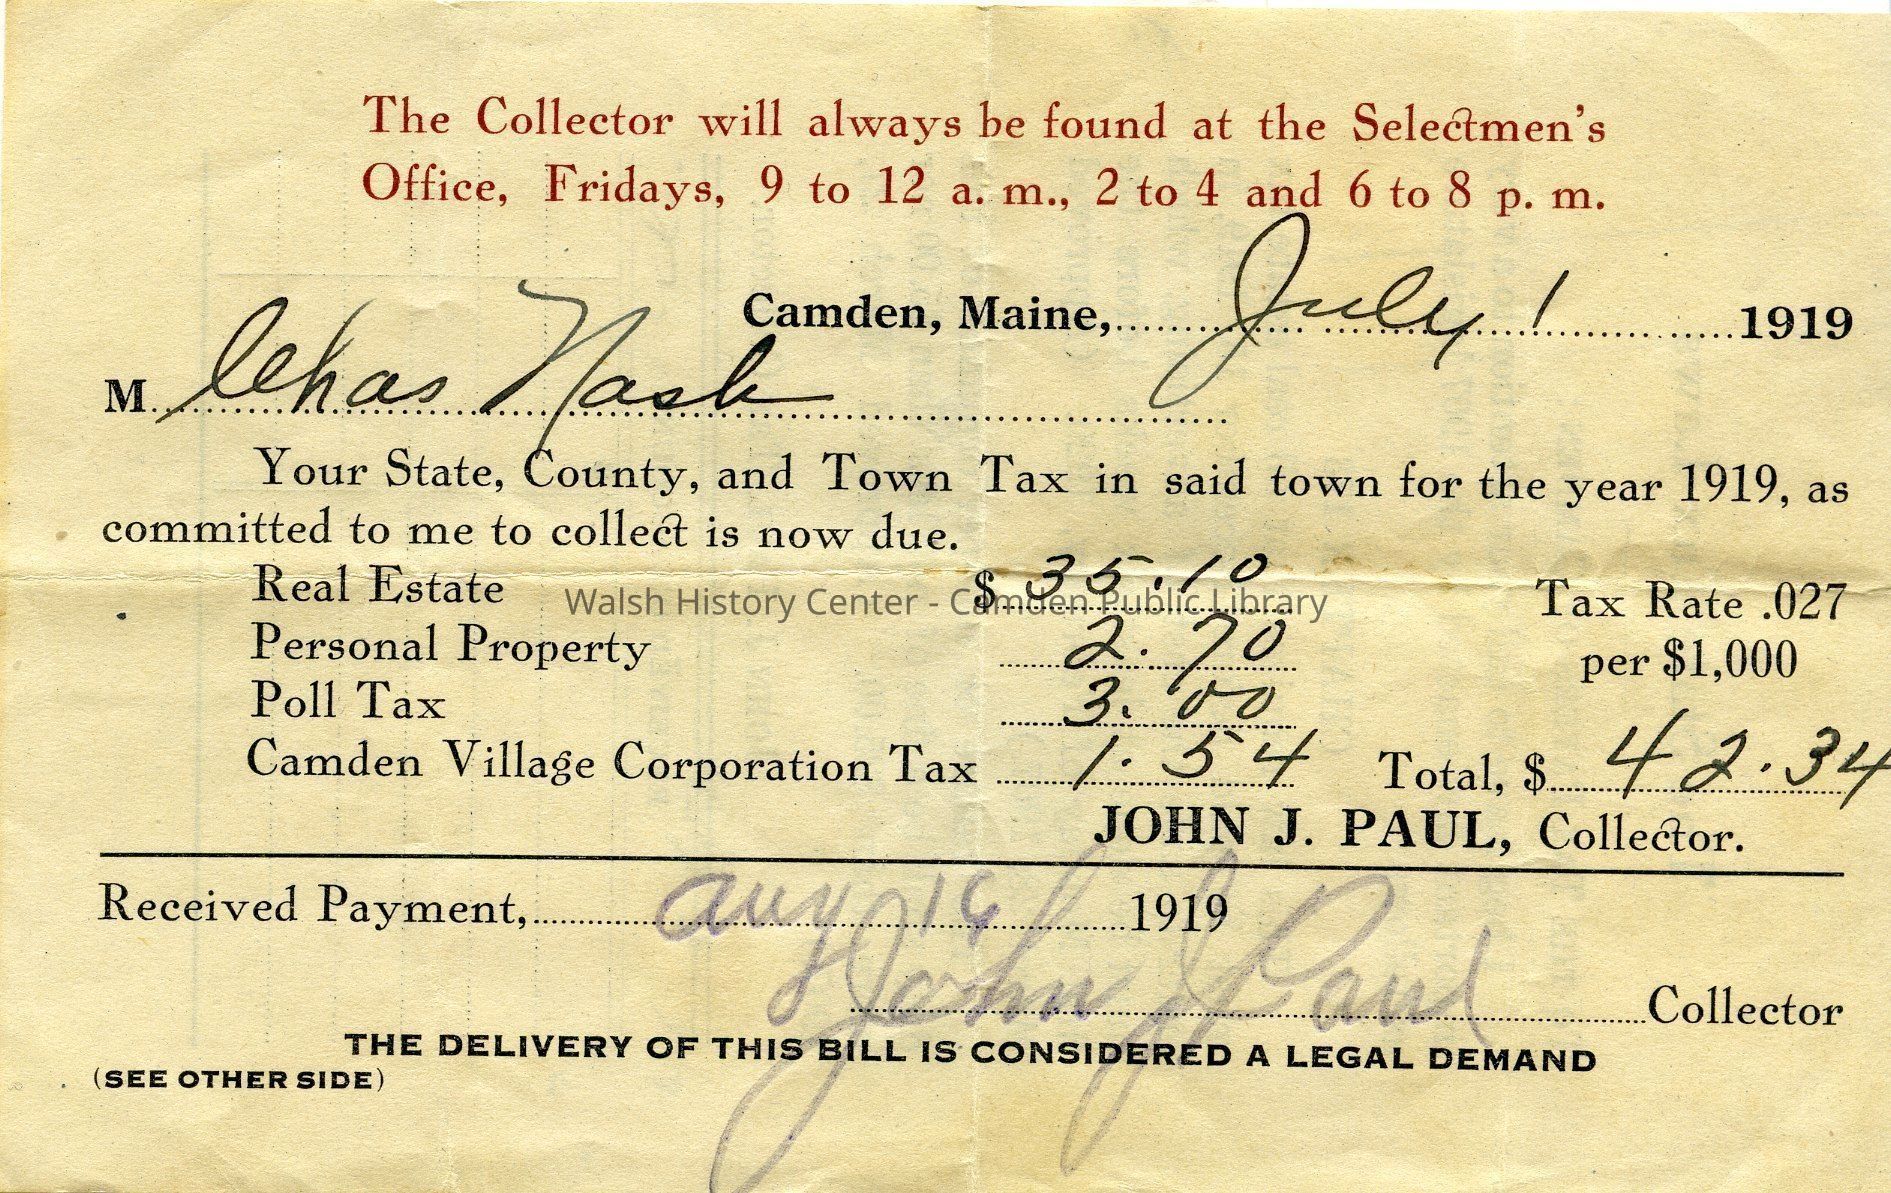 The Collector will always be found at the Selectmen's
Office, Fridays, 9 to 12 a. m., 2 to 4 and 6 to 8 p. m.
Camden, Maine, July 1 1919
M Chas Nash
Your State, County, and Town Tax in said town for the year 1919, as
committed to me to collect is now due.
Real Estate $ 35.10 Tax Rate .027
Walsh History Center - Camden Public Library
Personal Property 2.70 per $1,000
Poll Tax 3.00
Camden Village Corporation Tax 1.54 Total, $ 42.34
JOHN J. PAUL, Collector.
Received Payment, Aug 16 1919
John J Paul Collector
THE DELIVERY OF THIS BILL IS CONSIDERED A LEGAL DEMAND
(SEE OTHER SIDE)